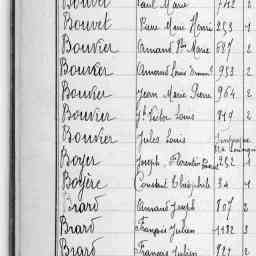 Bouvet Paul Marie 742 2
Bouvet Pierre Marie Henri 253 1
Bouvier Armand Pre Marie 687 2
Bouvier Armand Louis 953 2
Bouvier Jean Marie Pierre 964 2
Bouvier Victor Louis 819 2
Bouvier Jules Louis
Boyer Joseph Florentin 252 1
Boyère Constant Théophile 34 1
Brard Armand Joseph 807 2
Brard François Julien 1182 3
Brard François Julien 921 2